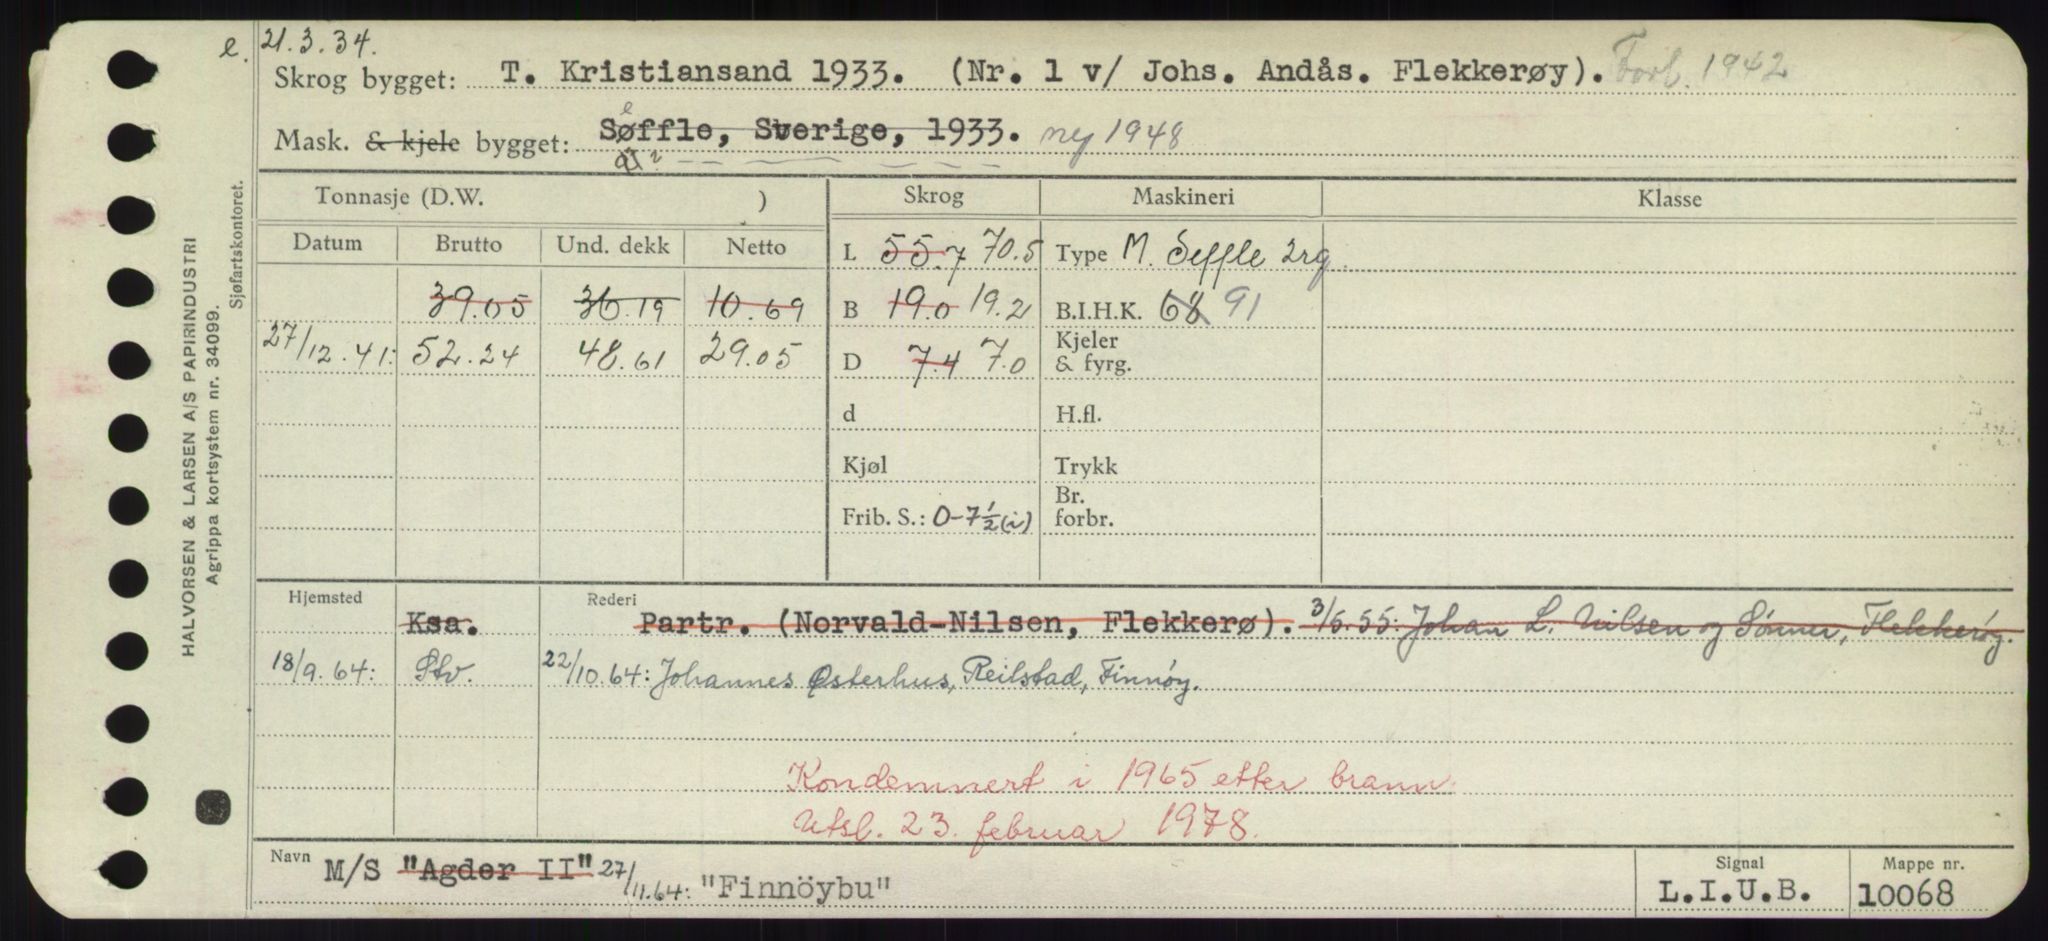 e. 21.3.34.
Skrog bygget: T. Kristiansand 1933. (Nr. 1 v/ Johs. Andås. Flekkerøy). Forl. 1942
Mask. & kjele bygget: Søffle, Sverige, 1933. ny 1948
HALVORSEN & LARSEN A/S PAPIRINDUSTRI
Agrippa kortsystem nr. 34099.
Sjøfartskontoret.
Tonnasje (D.W. ) Skrog Maskineri Klasse
Datum Brutto Und. dekk Netto L 55.7 70.5 Type M. Seffle 2rg.
39.05 36.19 10.69 B 19.0 19.2 B.I.H.K. 68 91
27/12.41: 52.24 48.61 29.05 D 7.4 7.0 Kjeler & fyrg.
d H.fl.
Kjøl Trykk
Frib. S.: 0-7½(i) Br. forbr.
Hjemsted Rederi
Ksa. Partr. (Norvald-Nilsen, Flekkerø). 3/5.55: Johan L. Nilsen og Sønner, Flekkerøy.
18/9.64: Stv. 22/10.64: Johannes Østerhus, Reilstad, Finnöy.
Kondemnert i 1965 etter brann.
Utsl. 23. februar 1978.
Navn M/S "Agder II" 27/11.64: "Finnöybu" Signal L.I.U.B. Mappe nr. 10068